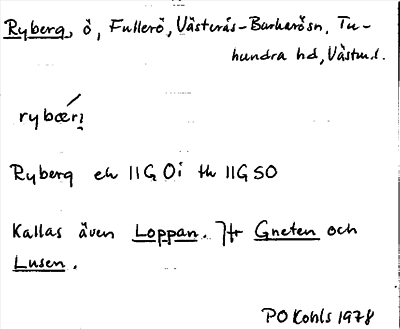 Ryberg, ö, Fullerö, Västerås-Barkarösn, Tu-
hundra hd, Västml.
Ryberg ek 11G 0i tk 11G SO
Kallas även Loppan. Jfr Gneten och
Lusen.
PO Kohls 1978